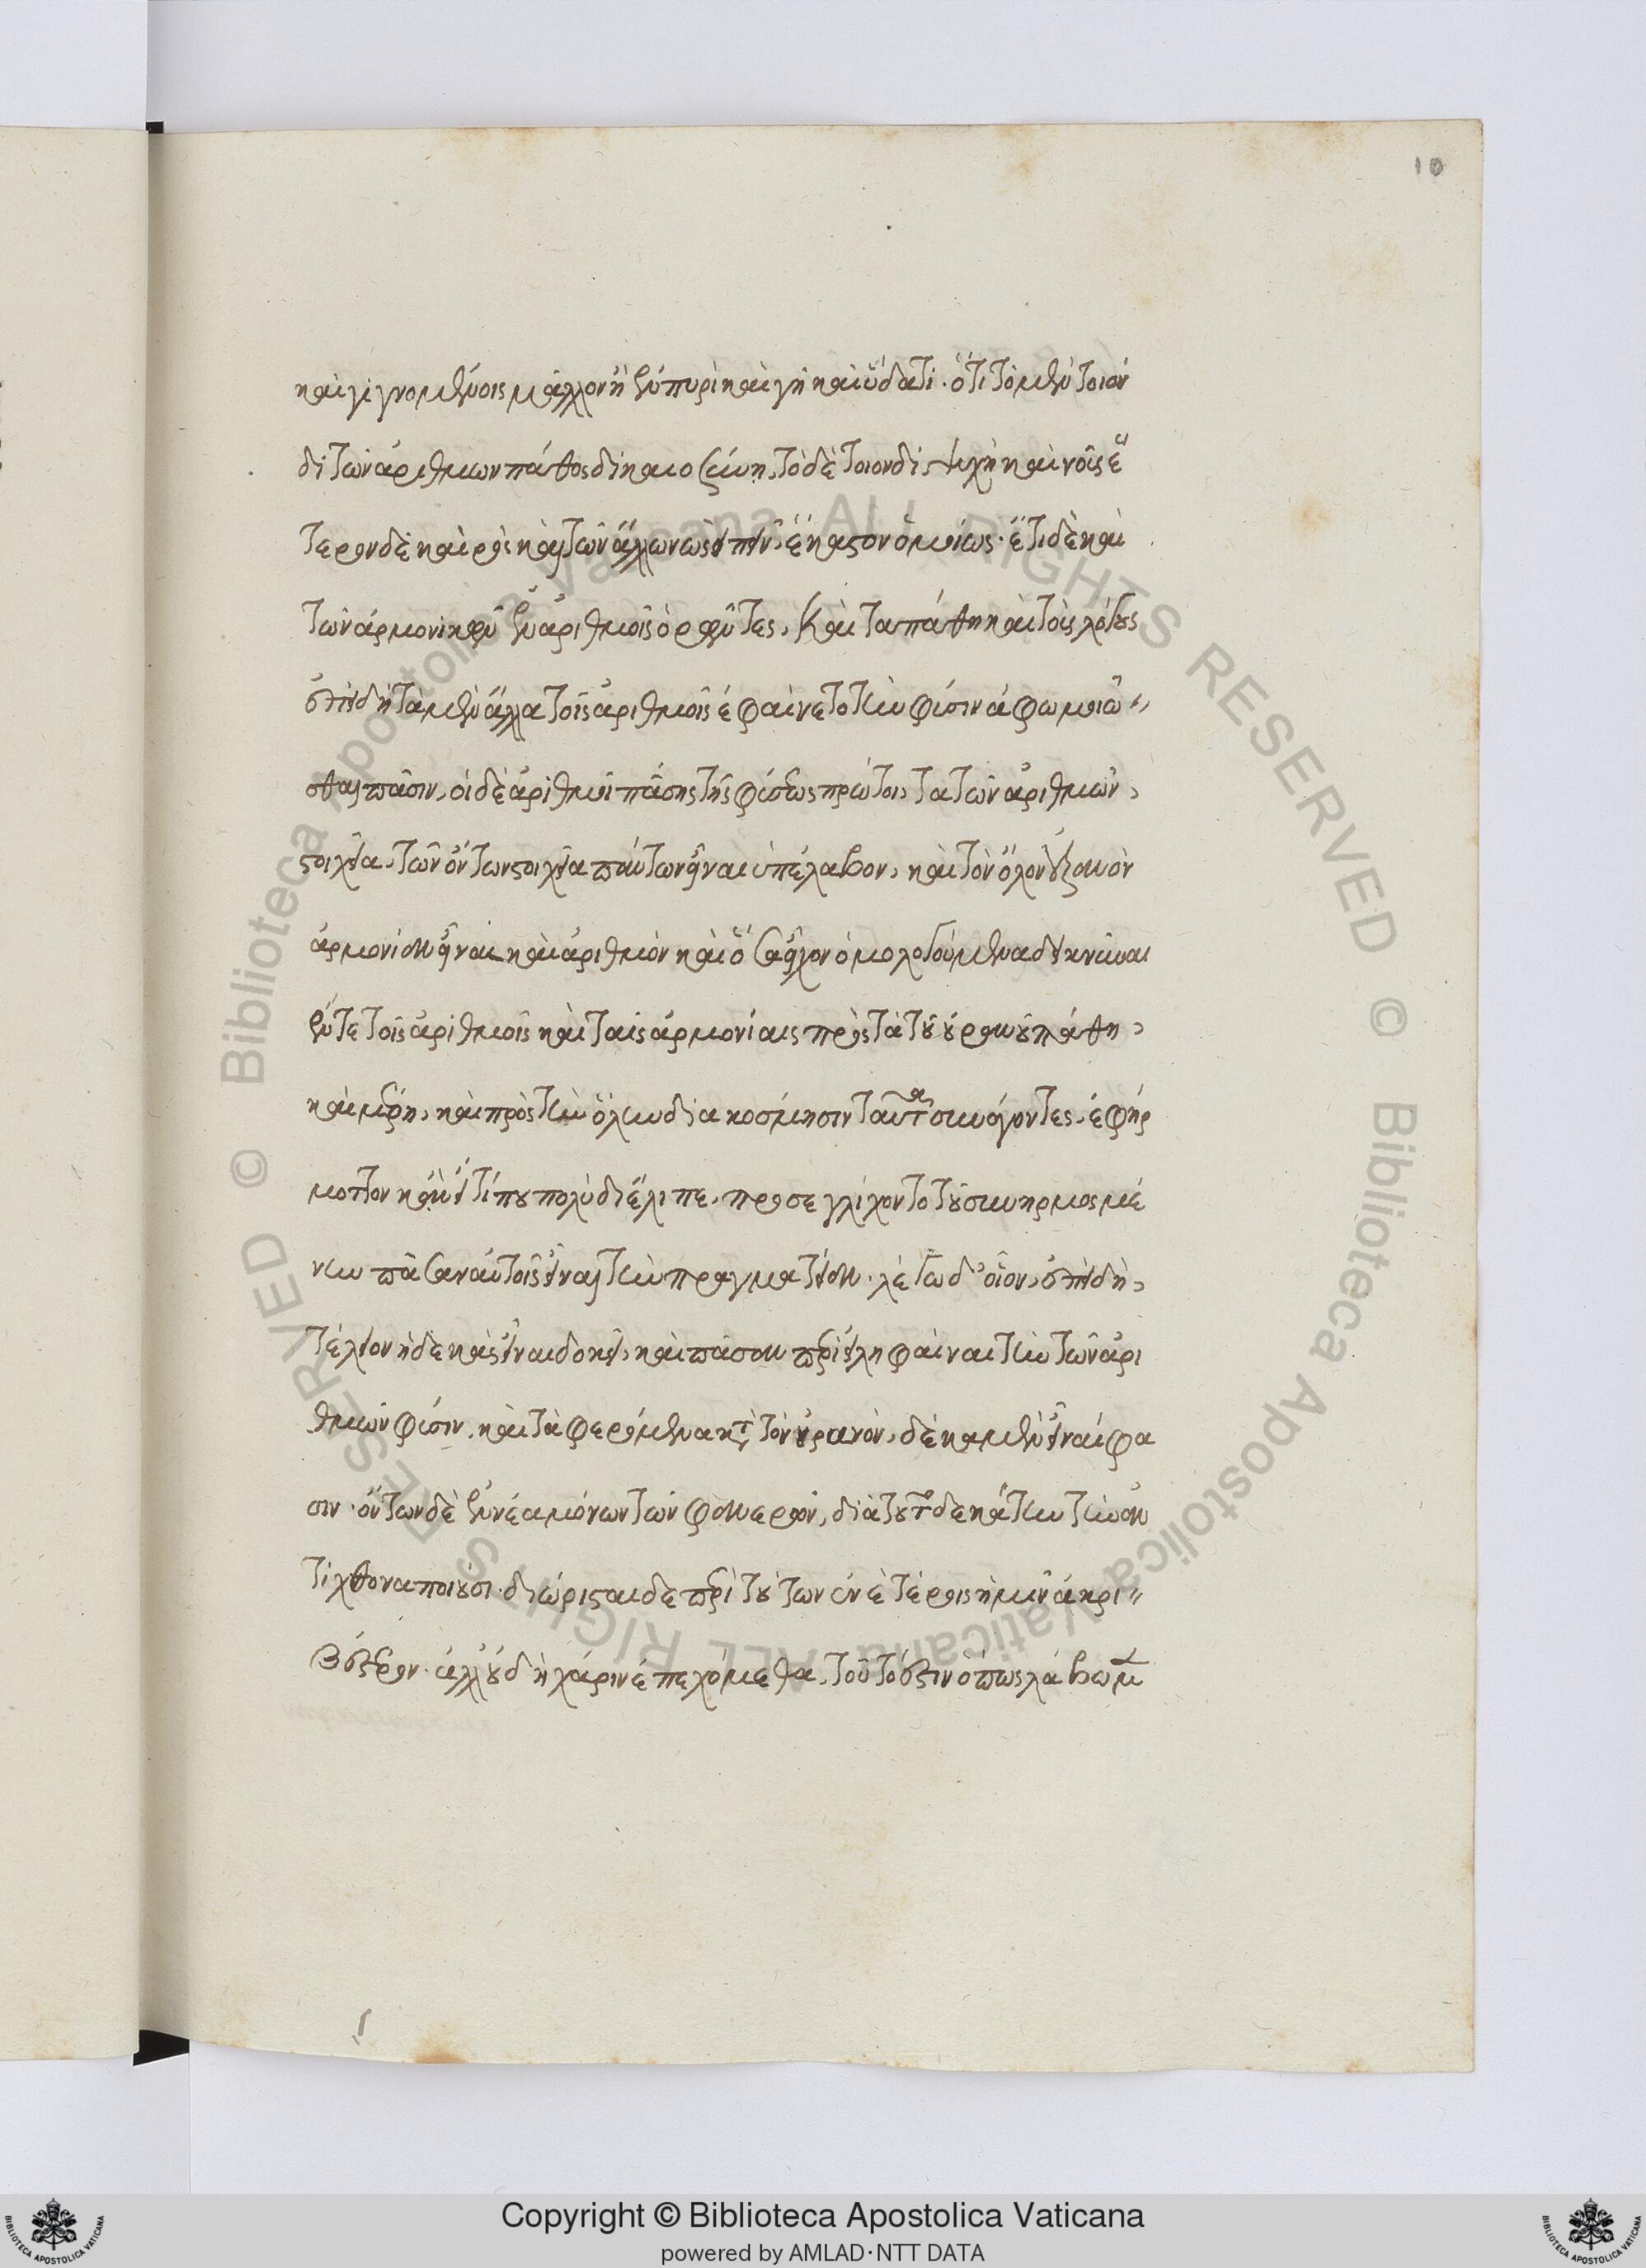 10
καὶ γιγνομένοις μᾶλλον ἢ ἐν πυρὶ καὶ γῇ καὶ ὕδατι· ὅτι τὸ μὲν τοιον
δὶ τῶν ἀριθμῶν πάθος δικαιοσύνη, τὸ δὲ τοιονδὶ ψυχὴ καὶ νοῦς ἕ
τερον δὲ καιρὸς καὶ τῶν ἄλλων ὡς εἰπεῖν, ἕκαστον ὁμοίως· ἔτι δὲ καὶ
τῶν ἁρμονικῶν ἐν ἀριθμοῖς ὁρῶντες, καὶ τα πάθη καὶ τοὺς λόγους
ἐπειδὴ τὰ μὲν ἄλλα τοῖς ἀριθμοῖς ἐφαίνετο τὴν φύσιν ἀφωμοιῶ
σθαι πᾶσιν, οἱ δὲ ἀριθμοὶ πάσης τῆς φύσεως πρῶτοι, τα τῶν ἀριθμῶν,
στοιχεῖα, τῶν ὄντων στοιχεῖα πάντων εἶναι ὑπέλαβον, καὶ τὸν ὅλον οὐρανὸν
ἁρμονίαν εἶναι καὶ ἀριθμὸν καὶ ὅσα εἶχον ὁμολογούμενα δεικνύναι
ἔν τε τοῖς ἀριθμοῖς καὶ ταῖς ἁρμονίαις πρὸς τὰ τοῦ οὐρανοῦ πάθη,
καὶ μέρη, καὶ πρὸς τὴν ὅλην διακόσμησιν ταῦτα συνάγοντες, ἐφήρ
μοττον κἂν εἴ τί που πολὺ διέλιπε, προσεγλίχοντο τοῦ συνηρμοσμέ
νην πᾶσαν αὐτοῖς εἶναι τὴν πραγματείαν. λέγω δ' οἷον, ἐπειδὴ,
τέλειον ἡ δεκὰς εἶναι δοκεῖ, καὶ πᾶσαν περιειληφαίναι τὴν τῶν ἀρι
θμῶν φύσιν, καὶ τὰ φερόμενα κατὰ τὸν οὐρανὸν, δέκα μὲν εἶναί φα
σιν· ὄντων δὲ ἐννέα μόνων τῶν φανερῶν, διὰ τοῦτο δεκάτην τὴν ἀν
τίχθονα ποιοῦσι· διώρισται δε περὶ τούτων ἐν ἑτέροις ἡμῖν ἀκρι
βέστερον. ἀλλ' οὗ δὴ χάριν ἐπερχόμεθα, τοῦτό ἐστιν ὅπως λάβωμεν
Copyright © Biblioteca Apostolica Vaticana
powered by AMLAD·NTT DATA